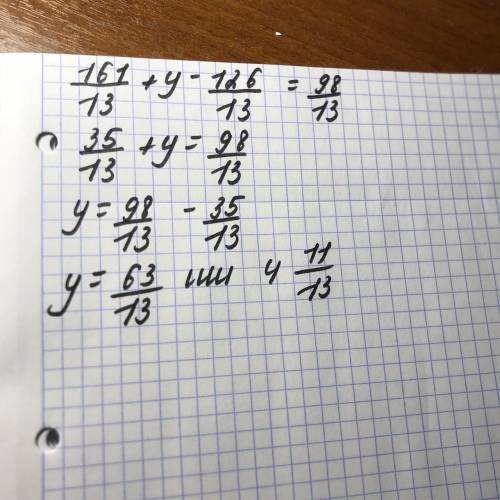 161/13 + y - 126/13 = 98/13
35/13 + y = 98/13
y = 98/13 - 35/13
y = 63/13 или 4 11/13